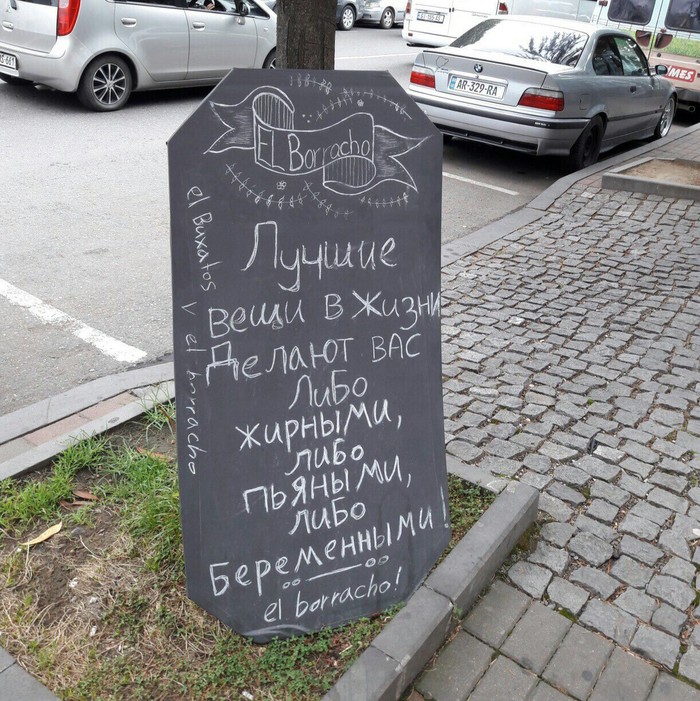 EL Borracho
Лучшие
вещи в жизни
Делают вас
либо
жирными,
либо
пьяными,
либо
Беременными!
el borracho!
el Buxatos v el borracho
AR-329-RA
MES